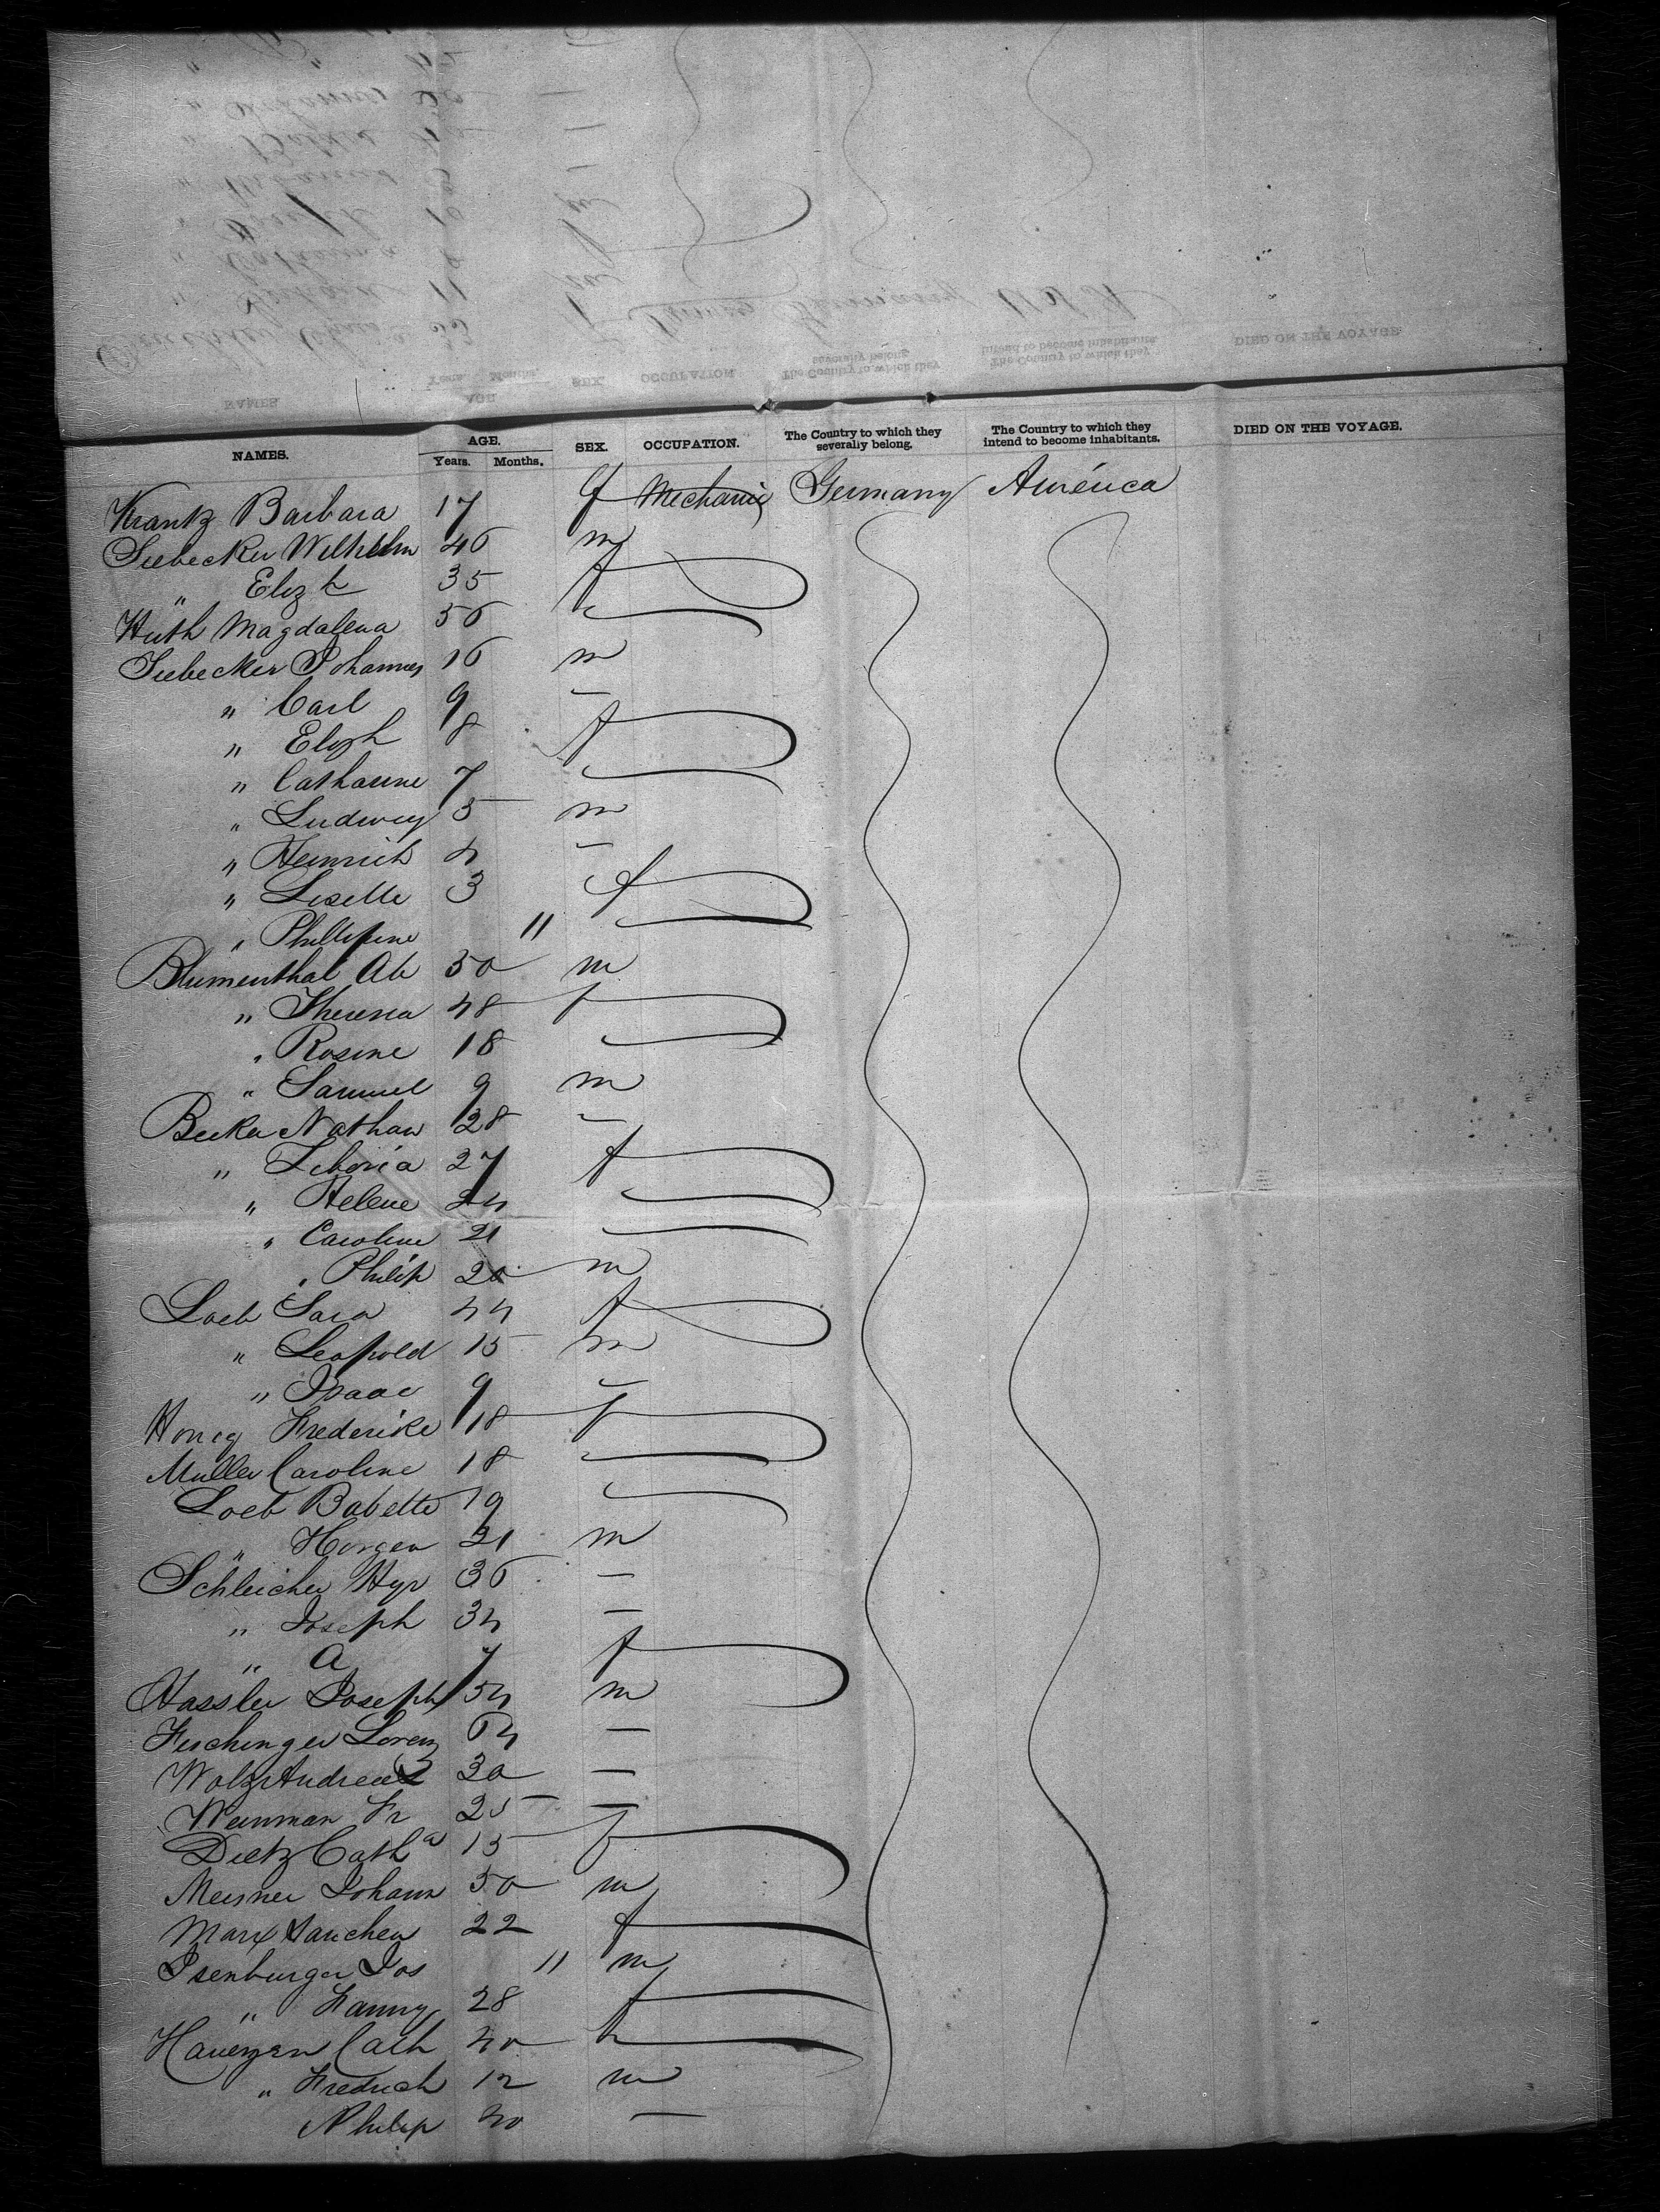 NAMES. AGE. Years. Months. SEX. OCCUPATION. The Country to which they severally belong. The Country to which they intend to become inhabitants. DIED ON THE VOYAGE.
Krantz Barbara 17 f Mechanic Germany America
Siebecker Wilhelm 46 m
" Elizh 35 f
Huth Magdalena 56 "
Siebecker Johannes 16 m
" Carl 9 –
" Elizh 8 f
" Catharine 7
" Ludwig 5 m
" Heinrich 4 –
" Liselle 3 f
" Phillipine 11
Blumenthal Ab 50 m
" Theresia 48 f
" Rosine 18
" Samuel 9 m
Becker Nathan 28 –
" Liboria 27 f
" Helene 24
" Caroline 21
" Philip 20 m
Loeb Sara 44 f
" Leopold 15 m
" Isaac 9 –
Honig Frederike 18 f
Muller Caroline 18
Loeb Babette 19
" 21 m
Schleicher 36 –
" Joseph 34 –
" A 7 f
Hassler Joseph 54 m
Lorenz 64 –
Wolz Andreas 30 –
Weinman Fr 25 –
Dietz Catha 15 f
Meisner Johann 50 m
Marx Hanchen 22 f
Isenburger Jos 11 m
" Fanny 28 f
Cath 40 f
" Fredrich 12 m
Philip 40 –